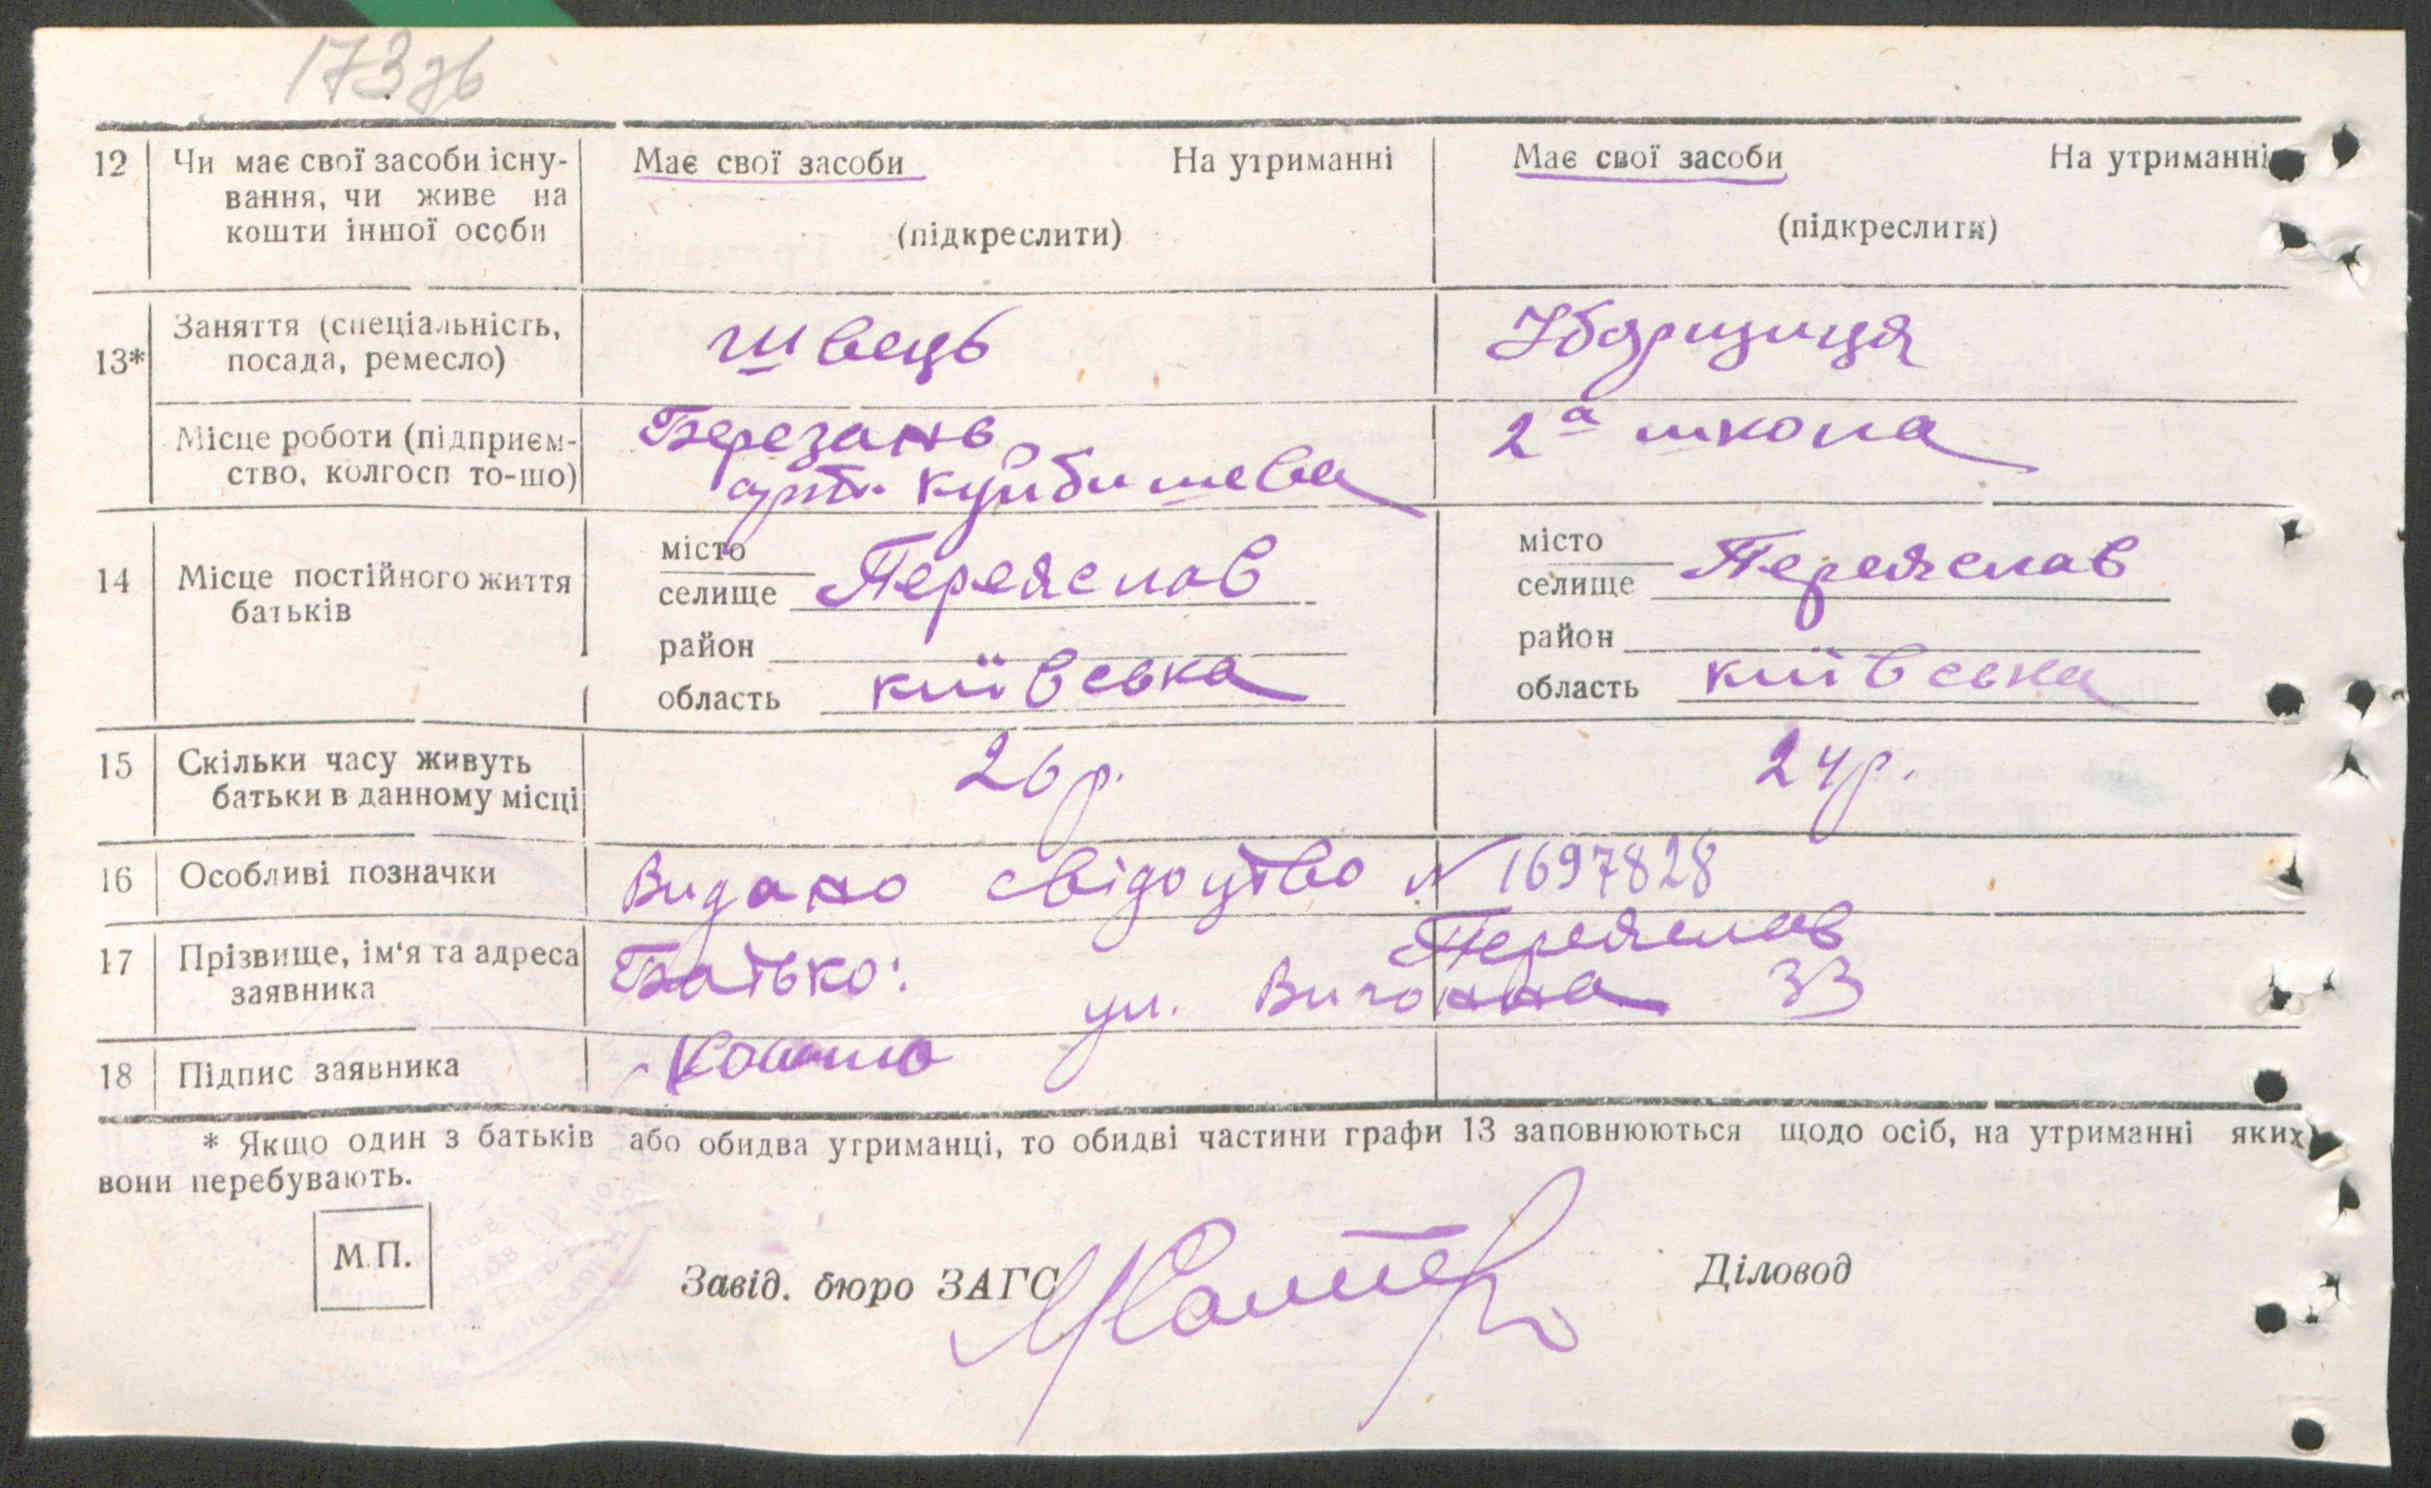 173зв
12 Чи має свої засоби існу- Має свої засоби На утриманні Має свої засоби На утриманні
вання, чи живе на
кошти іншої особи (підкреслити) (підкреслити)
13* Заняття (спеціальність, швець Убариця
посада, ремесло)
Місце роботи (підприєм- Березань 2а школа
ство, колгосп то-що) арт. Куйбишева
місто місто
14 Місце постійного життя селище Переяслав селище Переяслав
батьків
район район
область київська область київська
15 Скільки часу живуть 26 р. 24 р.
батьки в данному місці
16 Особливі позначки Видано свідоцтво N 1697828
17 Прізвище, ім'я та адреса Батько: Переяслав
заявника ул. Вигонна 33
18 Підпис заявника
* Якщо один з батьків або обидва утриманці, то обидві частини графи 13 заповнюються щодо осіб, на утриманні яких
вони перебувають.
М.П.
Завід. бюро ЗАГС Діловод